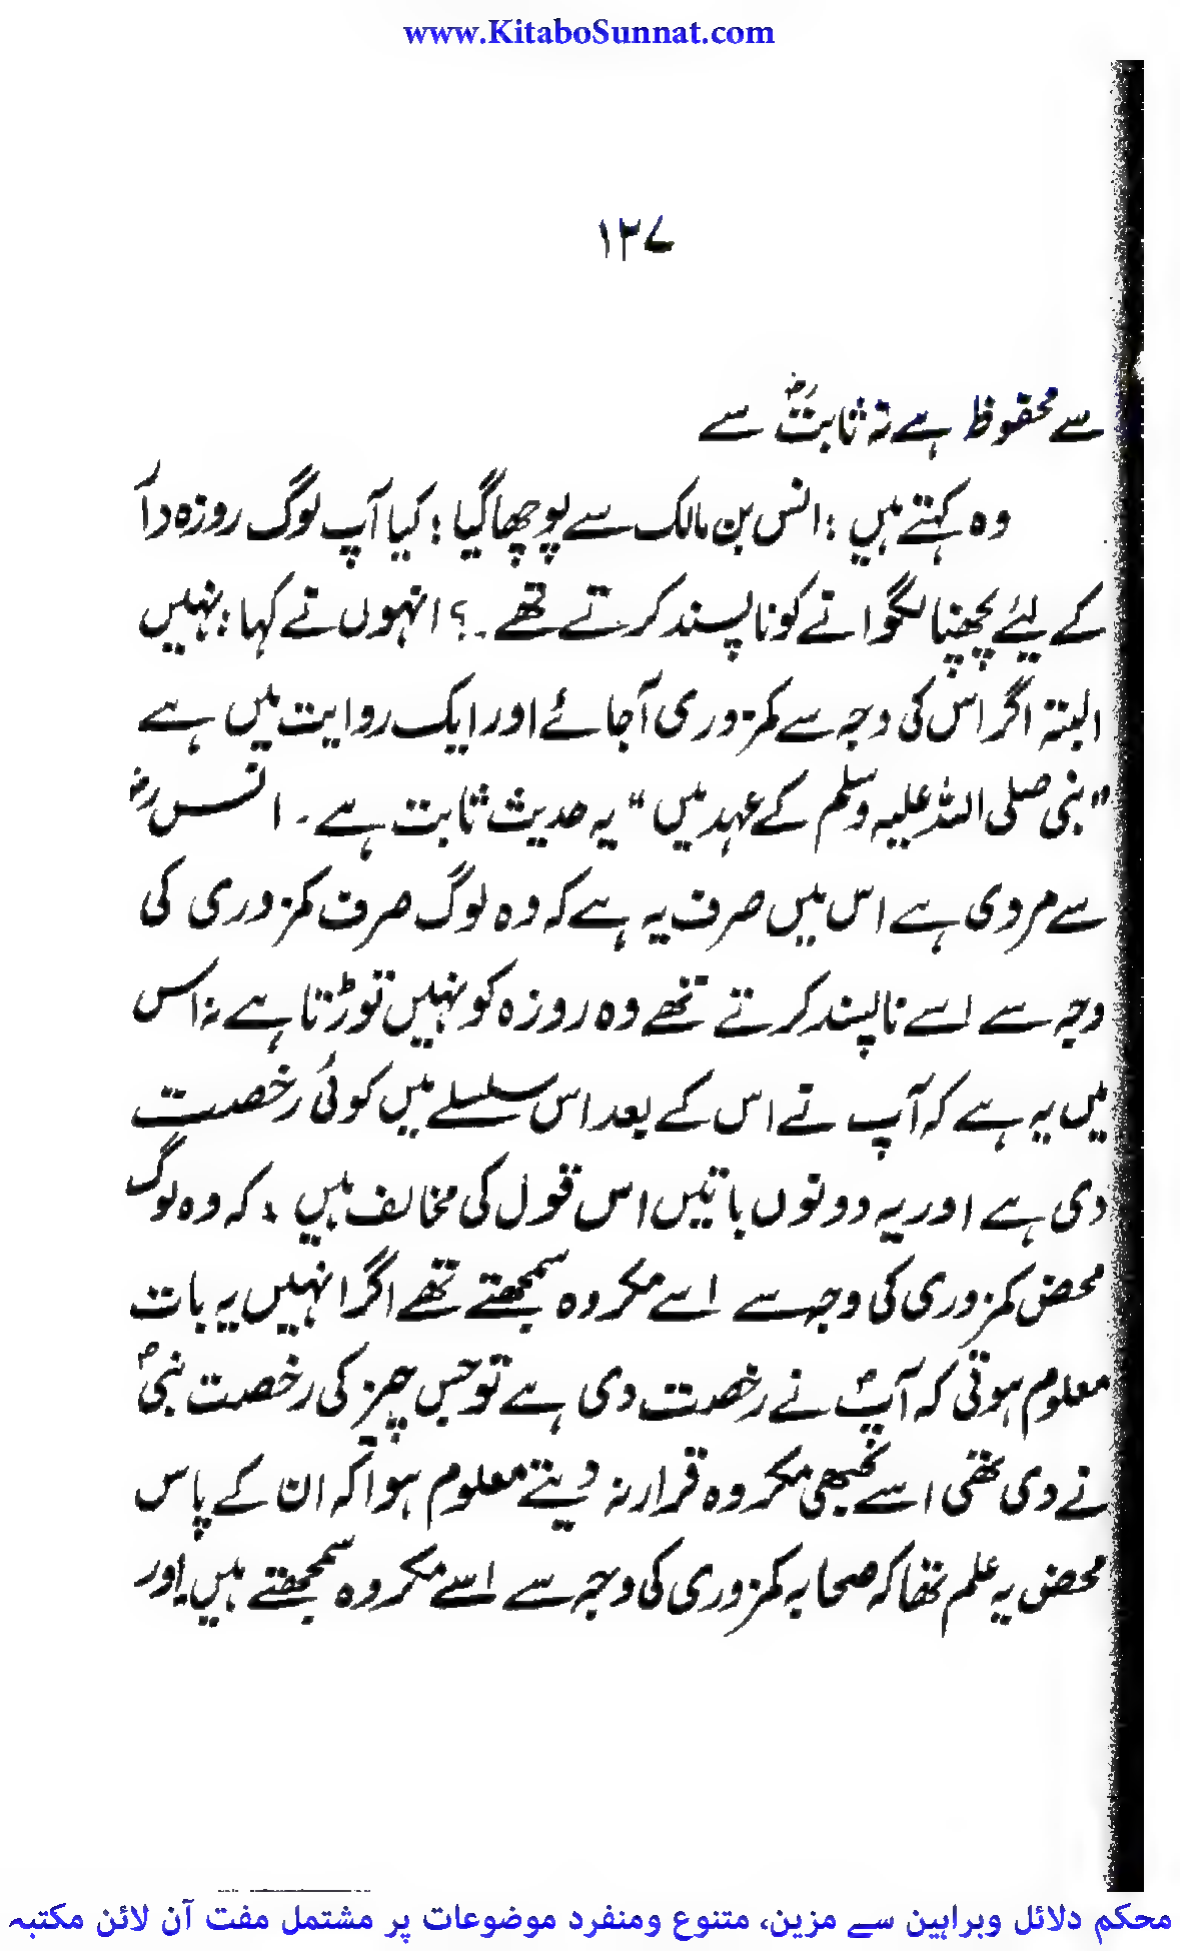 www.KitaboSunnat.com
۱۲۷
سے محفوظ ہے نہ ثابتؓ سے
وہ کہتے ہیں : انس بن مالک سے پوچھا گیا ؛ کیا آپ لوگ روزہ دار
کے لیئے پچھنا لگوانے کو ناپسند کرتے تھے ۔؟ انہوں نے کہا : نہیں
البتہ اگر اس کی وجہ سے کمزوری آجائے اور ایک روایت میں ہے
"نبی صلی اللہ علیہ وسلم کے عہد میں" یہ حدیث ثابت ہے ۔ انسؓ
سے مروی ہے اس میں صرف یہ ہے کہ وہ لوگ صرف کمزوری کی
وجہ سے اسے ناپسند کرتے تھے وہ روزہ کو نہیں توڑتا ہے نہ اس
میں یہ ہے کہ آپ نے اس کے بعد اس سلسلے میں کوئی رخصت
دی ہے اور یہ دونوں باتیں اس قول کی مخالف ہیں ، کہ وہ لوگ
محض کمزوری کی وجہ سے اسے مکروہ سمجھتے تھے اگر انہیں یہ بات
معلوم ہوتی کہ آپؐ نے رخصت دی ہے تو جس چیز کی رخصت نبیؐ
نے دی تھی اسے کبھی مکروہ قرار نہ دیتے معلوم ہوا کہ ان کے پاس
محض یہ علم تھا کہ صحابہ کمزوری کی وجہ سے اسے مکروہ سمجھتے ہیں اور
محکم دلائل وبراہین سے مزین، متنوع ومنفرد موضوعات پر مشتمل مفت آن لائن مکتبہ